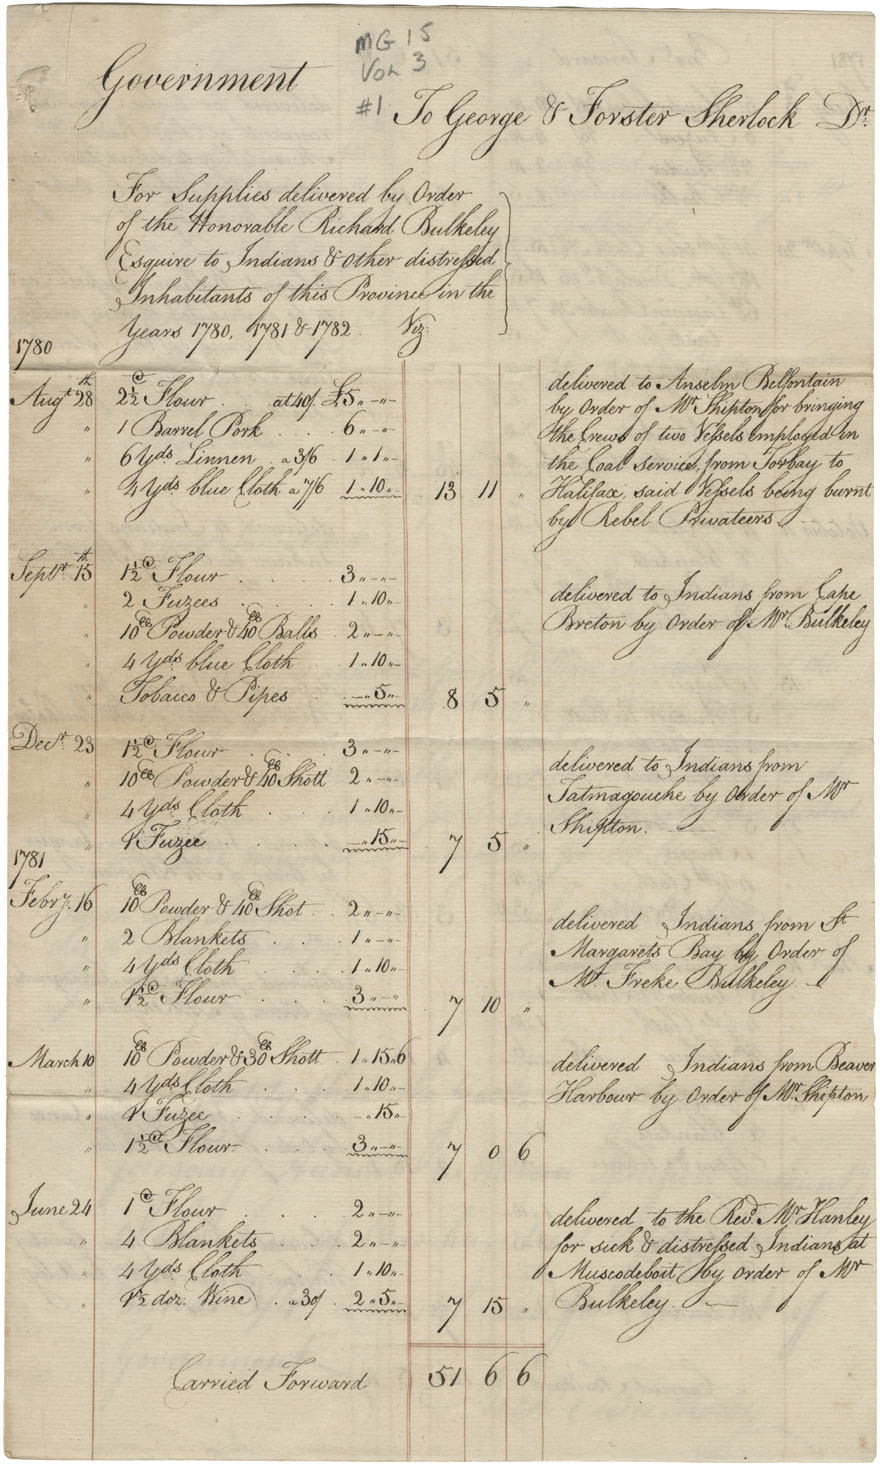 MG 15
Vol 3
#1
Government
To George & Forster Sherlock Dr.
For Supplies delivered by Order
of the Honorable Richard Bulkeley
Esquire to Indians & other distressed
Inhabitants of this Province in the
Years 1780, 1781 & 1782. Viz:
1780
Augt 28th 2½ C Flour . at 40/. £5 „ - „ -
„ 1 Barrel Pork . . . 6 „ - „ -
„ 6 Yds. Linnen . a 3/6 1 „ 1 „ -
„ 4 Yds blue Cloth a 7/6 1 „ 10 „ - 13 11 „
delivered to Anselm Belfontain
by Order of Mr Shipton for bringing
the Crews of two Vessels employed in
the Coal Service, from Torbay to
Halifax, said Vessels being burnt
by Rebel Privateers. -
Septr 15th 1½ C Flour . . . . 3 „ - „ -
„ 2 Fuzees . . . . 1 „ 10 „ -
„ 10 lb Powder & 40 lb Balls 2 „ - „ -
„ 4 Yds blue Cloth . 1 „ 10 „ -
„ Tobacco & Pipes . - „ 5 „ - 8 5 „
delivered to Indians from Cape
Breton by Order of Mr Bulkeley
Decr 23 1½ C Flour . . . . 3 „ - „ -
„ 10 lb Powder & 40 lb Shott 2 „ - „ -
„ 4 Yds Cloth . . . 1 „ 10 „ -
„ 1 Fuzee . . . . - „ 15 „ - 7 5 „
delivered to Indians from
Tatmagouche by Order of Mr
Shipton.
1781
Febry. 16 10 lb Powder & 40 lb Shot . 2 „ - „ -
„ 2 Blankets . . . 1 „ - „ -
„ 4 Yds Cloth . . . 1 „ 10 „ -
„ 1½ C Flour . . . 3 „ - „ - 7 10 „
delivered Indians from St
Margarets Bay by Order of
Mr. Freke Bulkeley
March 10 10 lb Powder & 30 lb Shott . 1 „ 15 „ 6
„ 4 Yds Cloth . . . 1 „ 10 „ -
„ 1 Fuzee . . . . - „ 15 „ -
„ 1½ C Flour . . . 3 „ - „ - 7 0 6
delivered Indians from Beaver
Harbour by Order of Mr. Shipton
June 24 1 C Flour . . . . 2 „ - „ -
„ 4 Blankets . . . 2 „ - „ -
„ 4 Yds Cloth . . . 1 „ 10 „ -
„ 1½ doz. Wine . a 30/ 2 „ 5 „ - 7 15 „
delivered to the Revd. Mr Hanley
for sick & distressed Indians at
Muscodeboit by Order of Mr
Bulkeley.
Carried Forward 51 6 6